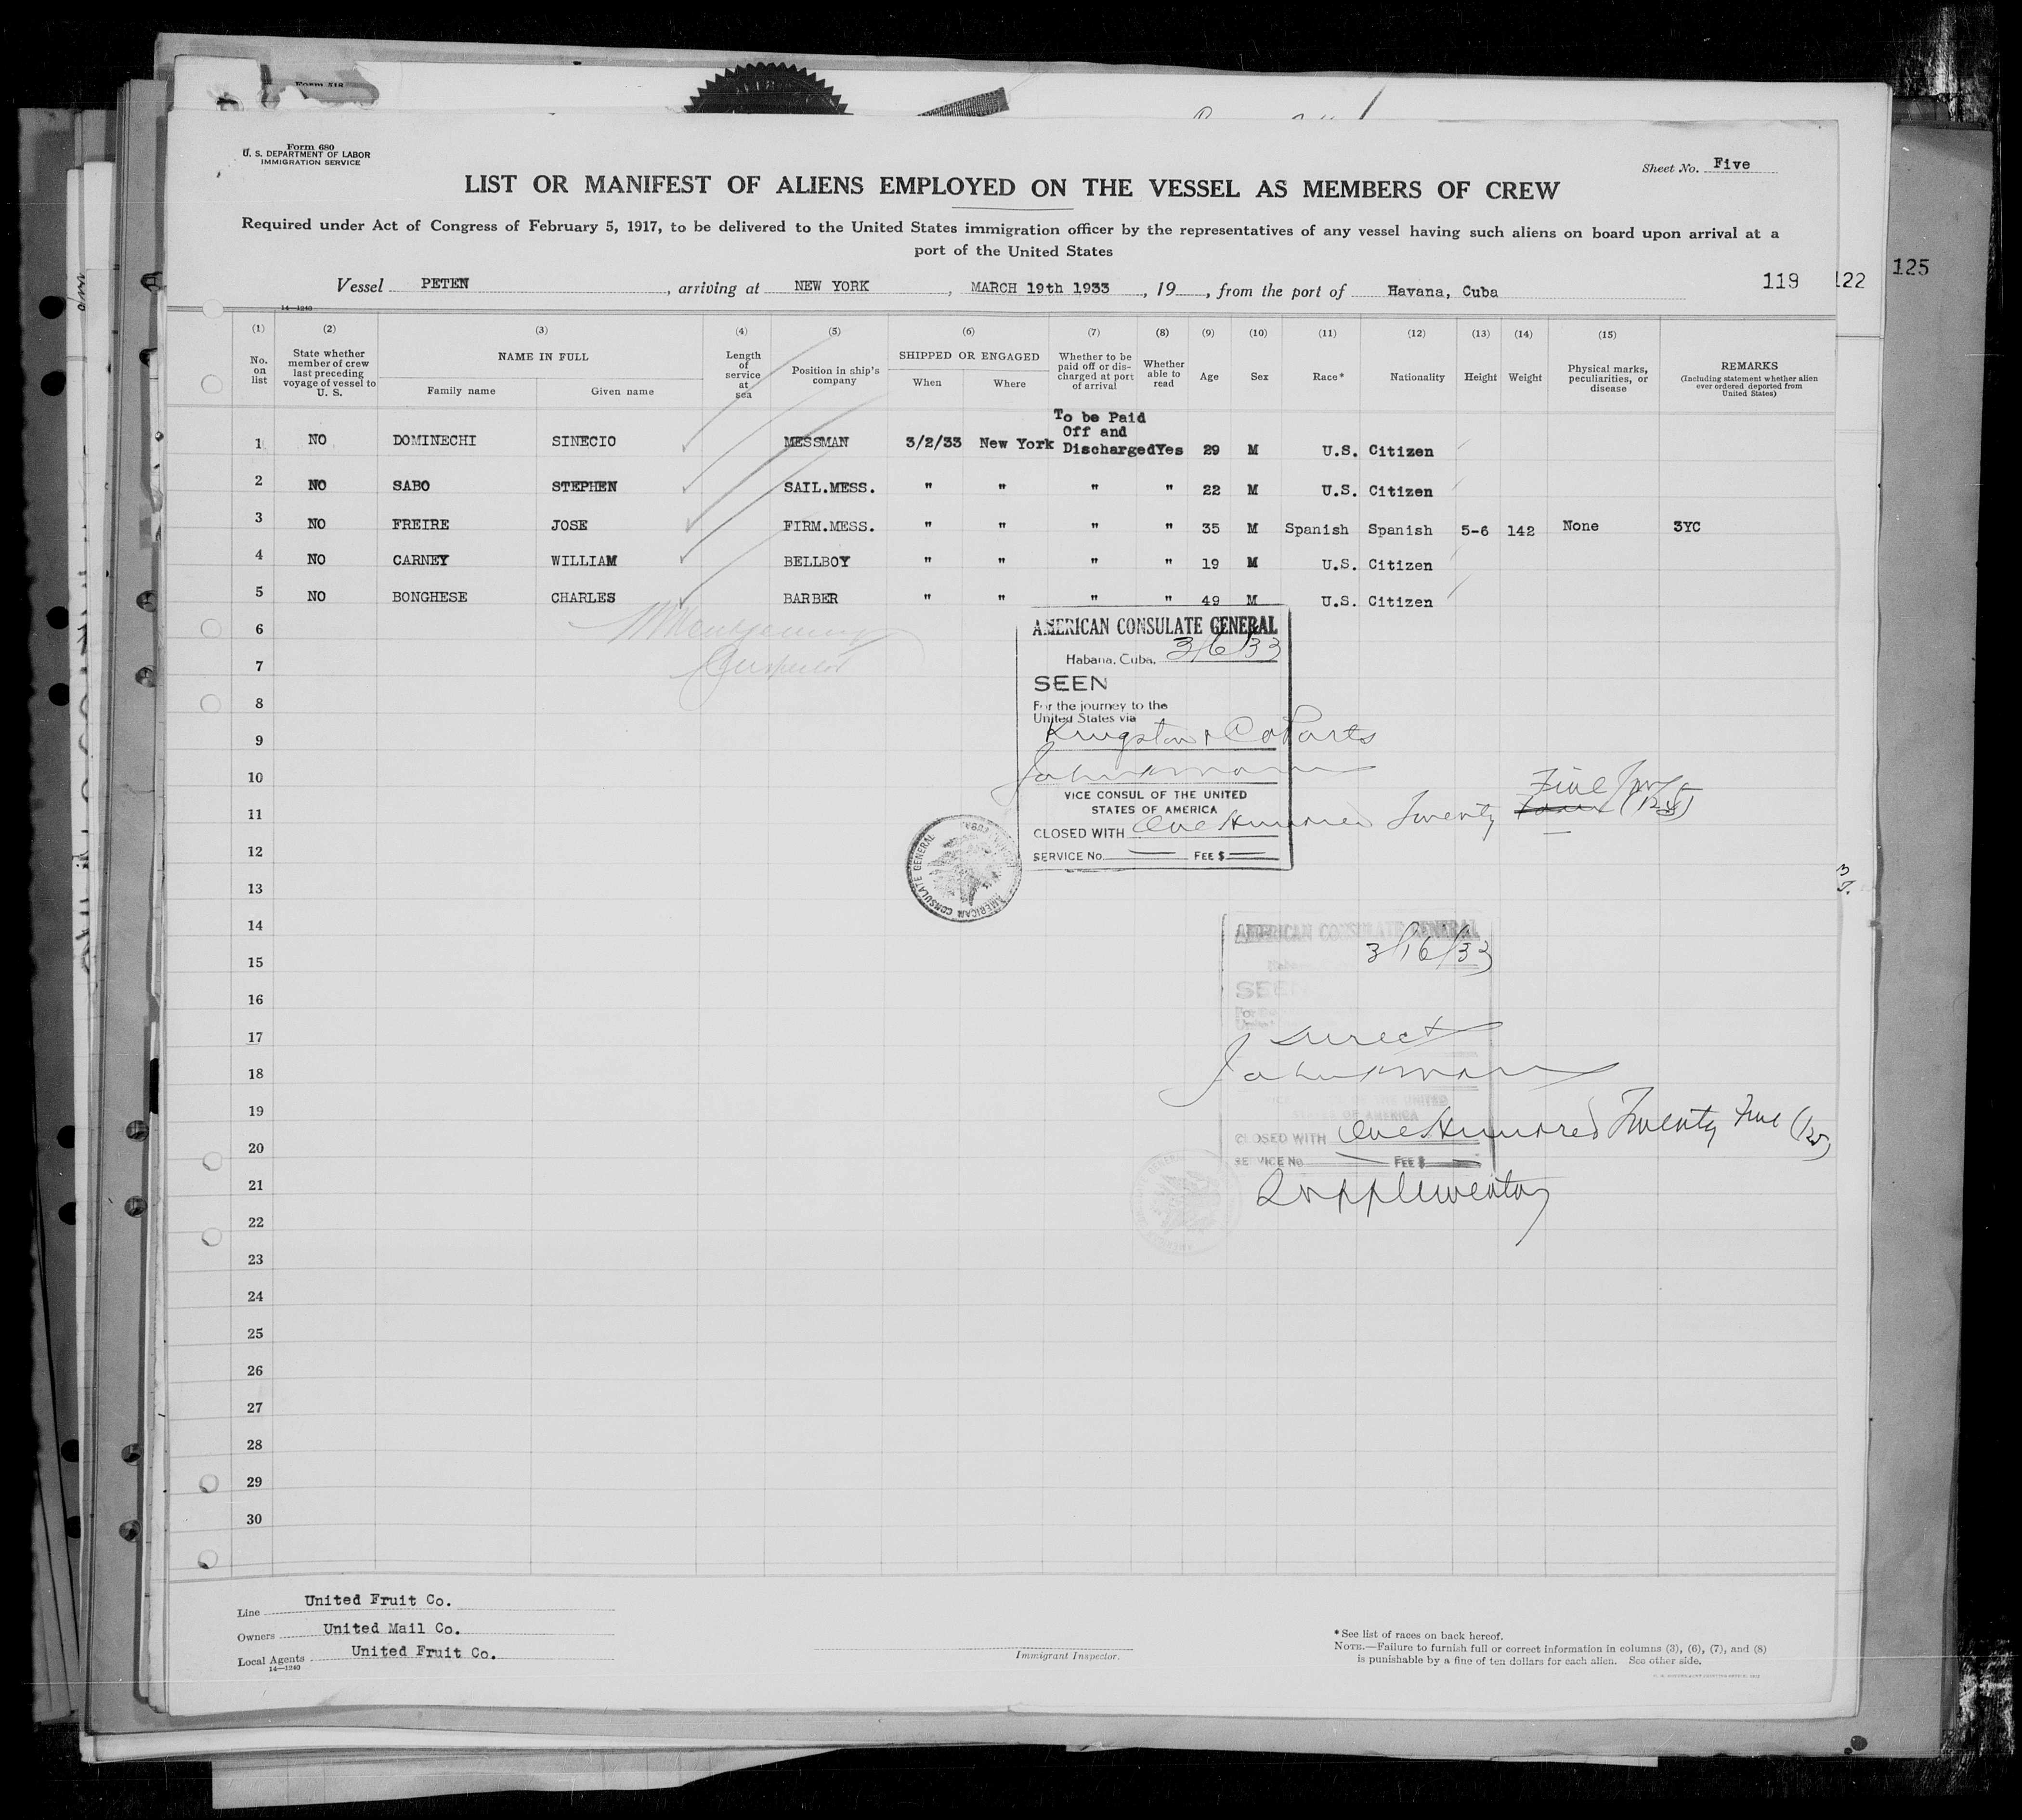 Form 680
U. S. DEPARTMENT OF LABOR
IMMIGRATION SERVICE
Sheet No. Five
LIST OR MANIFEST OF ALIENS EMPLOYED ON THE VESSEL AS MEMBERS OF CREW
Required under Act of Congress of February 5, 1917, to be delivered to the United States immigration officer by the representatives of any vessel having such aliens on board upon arrival at a
port of the United States
Vessel PETEN, arriving at NEW YORK, MARCH 19th 1933, 19, from the port of Havana, Cuba 119 122 125
14—1240
(1) (2) (3) (4) (5) (6) (7) (8) (9) (10) (11) (12) (13) (14) (15)
No. on list
State whether member of crew last preceding voyage of vessel to U. S.
NAME IN FULL
Family name Given name
Length of service at sea
Position in ship's company
SHIPPED OR ENGAGED
When Where
Whether to be paid off or discharged at port of arrival
Whether able to read
Age Sex Race* Nationality Height Weight
Physical marks, peculiarities, or disease
REMARKS
(Including statement whether alien ever ordered deported from United States)
To be Paid
Off and
1 NO DOMINECHI SINECIO MESSMAN 3/2/33 New York Discharged Yes 29 M U.S. Citizen
2 NO SABO STEPHEN SAIL.MESS. " " " " 22 M U.S. Citizen
3 NO FREIRE JOSE FIRM.MESS. " " " " 35 M Spanish Spanish 5-6 142 None 3YC
4 NO CARNEY WILLIAM BELLBOY " " " " 19 M U.S. Citizen
5 NO BONGHESE CHARLES BARBER " " " " 49 M U.S. Citizen
6
7
8
9
10
11
12
13
14
15
16
17
18
19
20
21
22
23
24
25
26
27
28
29
30
Inspector
AMERICAN CONSULATE GENERAL
Habana, Cuba, 3/6/33
SEEN
For the journey to the
United States via
Kingston & Co Ports
VICE CONSUL OF THE UNITED
STATES OF AMERICA
CLOSED WITH One Hundred Twenty Five (125)
SERVICE No. FEE $
AMERICAN CONSULATE GENERAL
AMERICAN CONSULATE GENERAL
3/16/33
SEEN
Direct
VICE CONSUL OF THE UNITED
STATES OF AMERICA
CLOSED WITH One Hundred Twenty Five (125)
SERVICE No. FEE $
Supplementary
Line United Fruit Co.
Owners United Mail Co.
Local Agents United Fruit Co.
14—1240
Immigrant Inspector.
*See list of races on back hereof.
NOTE.—Failure to furnish full or correct information in columns (3), (6), (7), and (8)
is punishable by a fine of ten dollars for each alien. See other side.